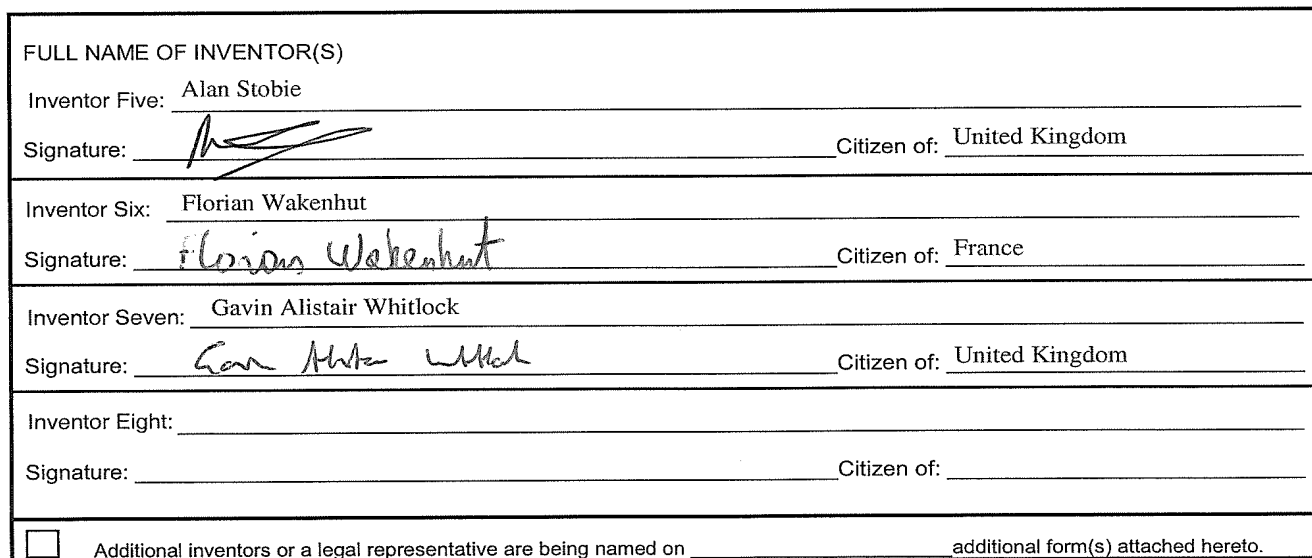 FULL NAME OF INVENTOR(S)
Inventor Five: Alan Stobie
Signature: Citizen of: United Kingdom
Inventor Six: Florian Wakenhut
Signature: Florian Wakenhut Citizen of: France
Inventor Seven: Gavin Alistair Whitlock
Signature: Gavin Alistair Whitlock Citizen of: United Kingdom
Inventor Eight:
Signature: Citizen of:
Additional inventors or a legal representative are being named on additional form(s) attached hereto.